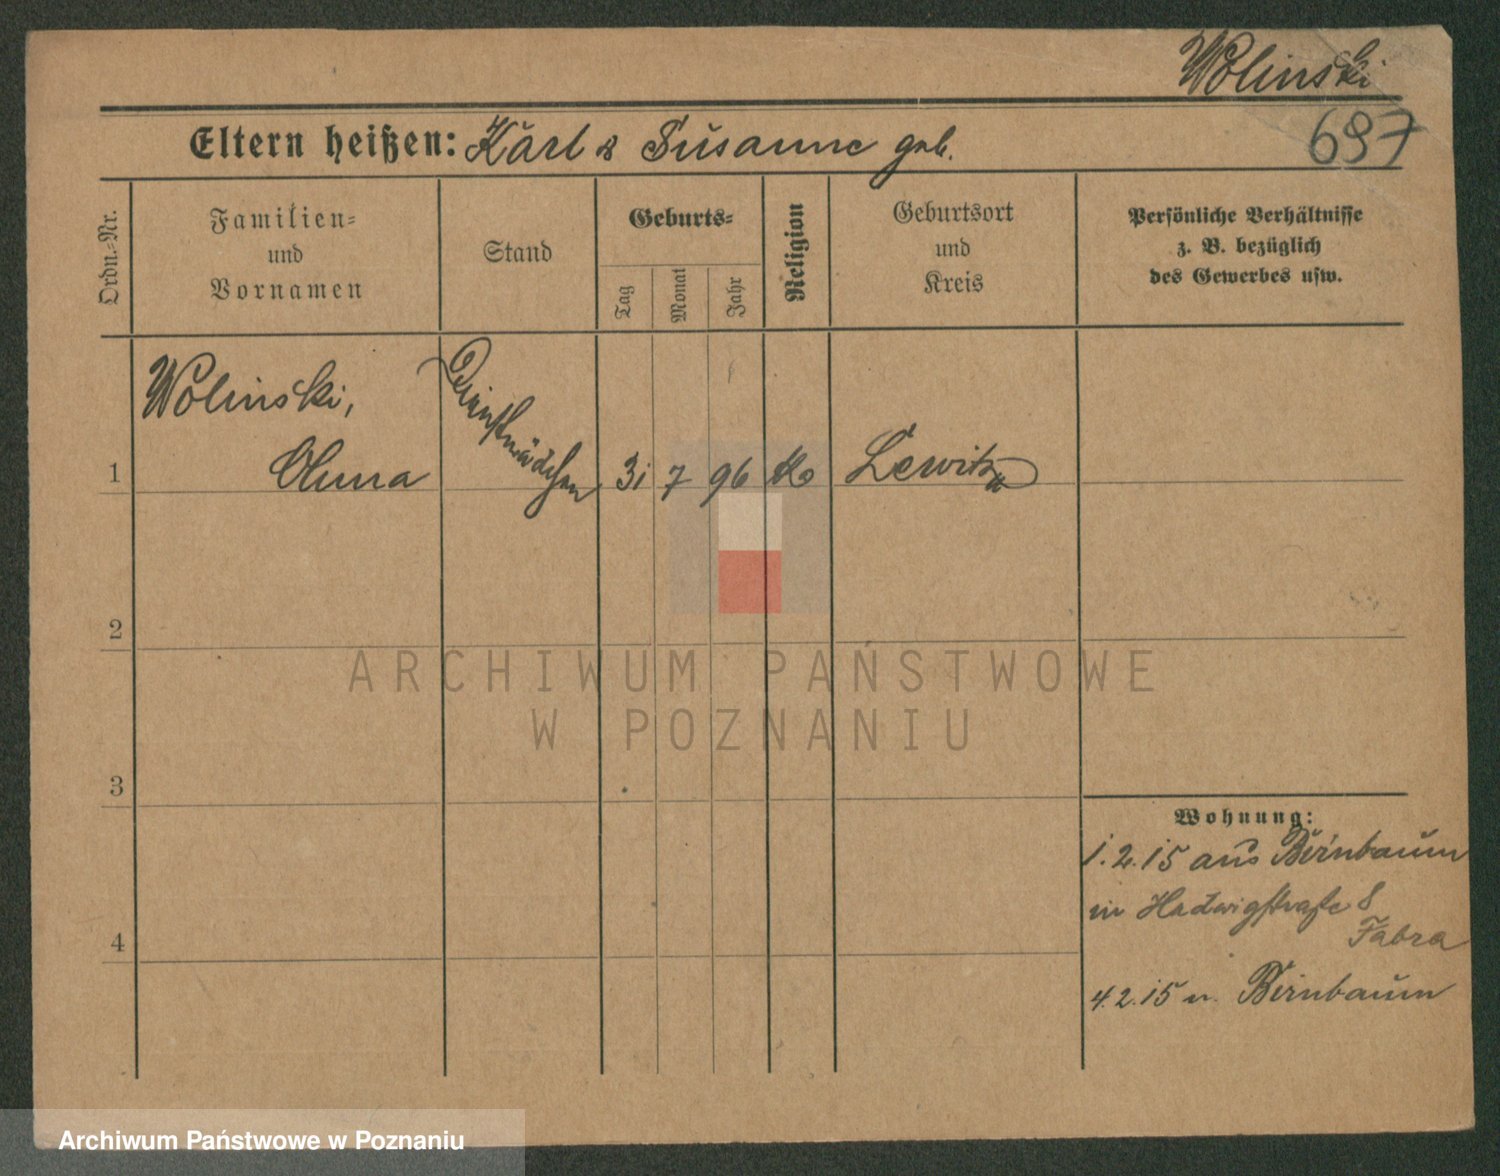 Wolinski
Eltern heißen: Karl & Susanne geb.
697
Ordn.-Nr.
Familien-
und
Vornamen
Stand
Geburts-
Tag
Monat
Jahr
Religion
Geburtsort
und
Kreis
Persönliche Verhältnisse
z. B. bezüglich
des Gewerbes usw.
Wolinski,
Dienstmädchen
1
Anna
31
7
96
Lewitz
2
ARCHIWUM PAŃSTWOWE
W POZNANIU
3
Wohnung:
1.2.15 aus Birnbaum
in Hedwigstraße 8
Fabra
4
4.2.15 n. Birnbaum
Archiwum Państwowe w Poznaniu